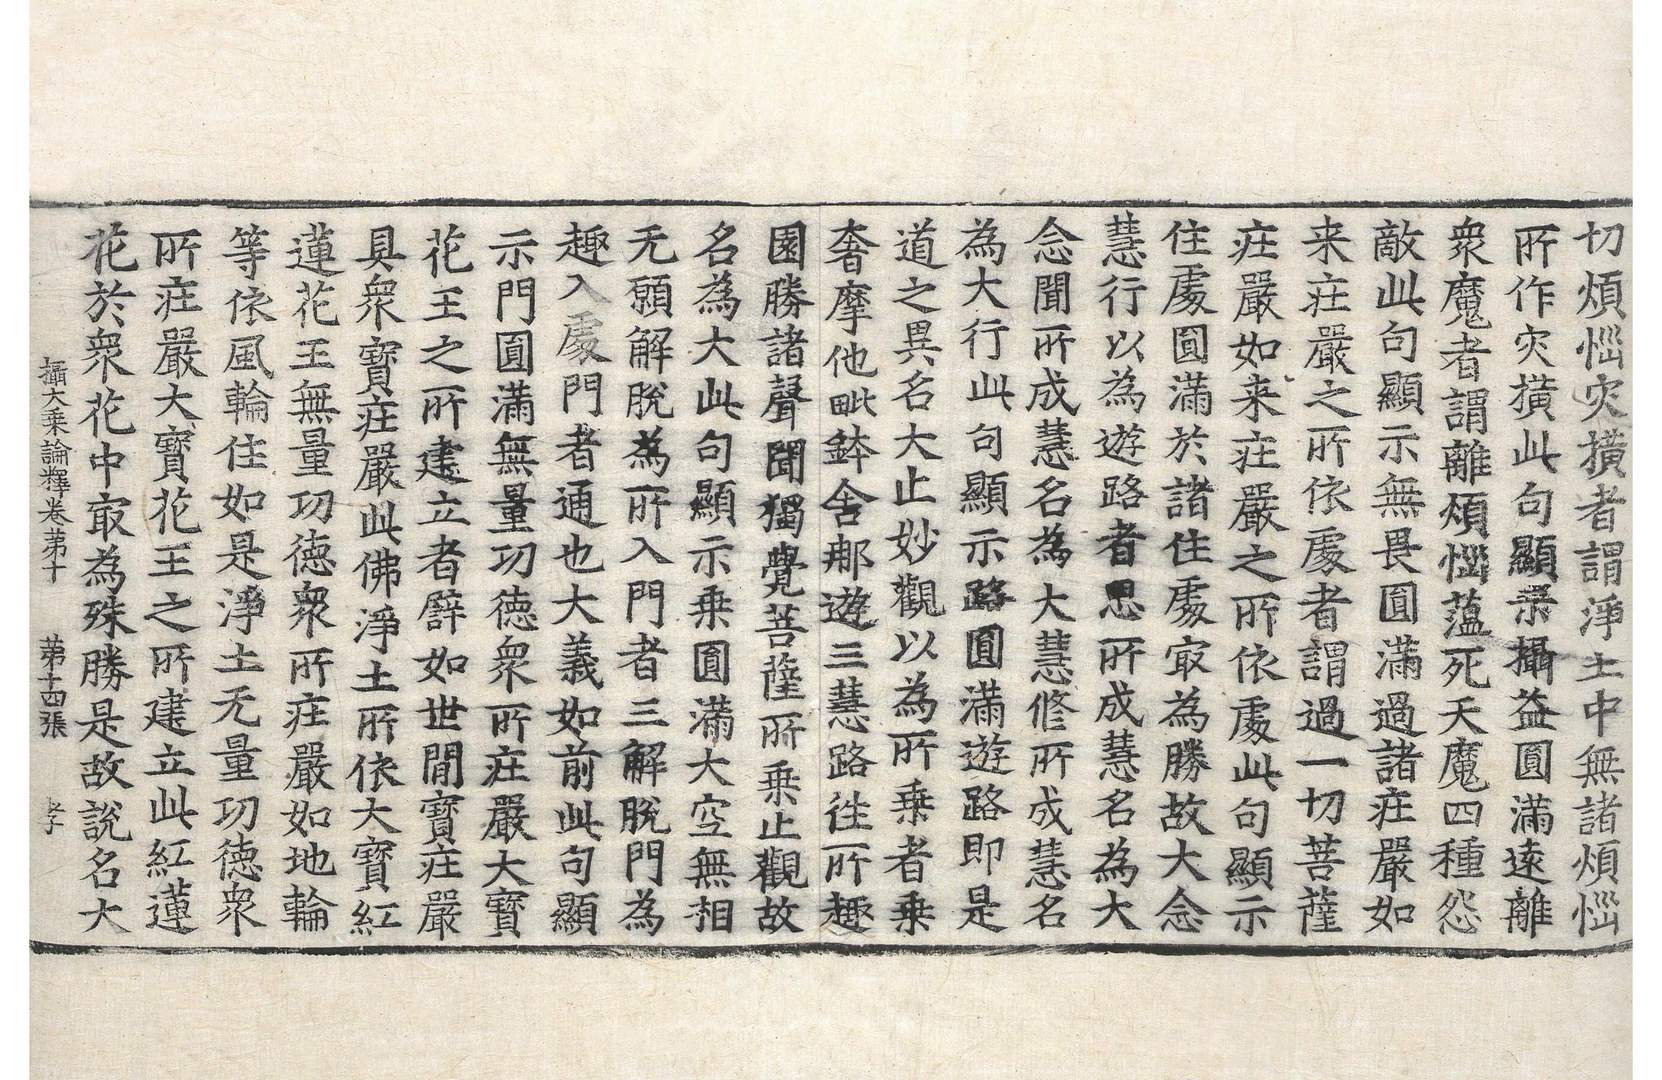 切煩惱灾橫者謂淨土中無諸煩惱
所作灾橫此句顯示攝益圓滿遠離
衆魔者謂離煩惱蘊死天魔四種怨
敵此句顯示無畏圓滿過諸莊嚴如
来莊嚴之所依處者謂過一切菩薩
莊嚴如来莊嚴之所依處此句顯示
住處圓滿於諸住處㝡為勝故大念
慧行以為遊路者思所成慧名為大
念聞所成慧名為大慧修所成慧名
為大行此句顯示路圓滿遊路即是
道之異名大止妙觀以為所乗者乗
奢摩他毗鉢舍那遊三慧路往所趣
園勝諸聲聞獨覺菩薩所乗止觀故
名為大此句顯示乗圓滿大空無相
无願解脫為所入門者三解脫門為
趣入處門者通也大義如前此句顯
示門圓滿無量功德衆所莊嚴大寶
花王之所建立者譬如世間寶莊嚴
具衆寶莊嚴此佛淨土所依大寶紅
蓮花王無量功德衆所莊嚴如地輪
等依風輪住如是淨土无量功德衆
所莊嚴大寶花王之所建立此紅蓮
花於衆花中㝡為殊勝是故說名大
攝大乗論釋卷第十 第十四張 孝